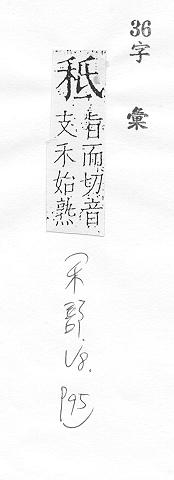 36
字彙
秪
旨而切音
支禾始熟
禾部
P95